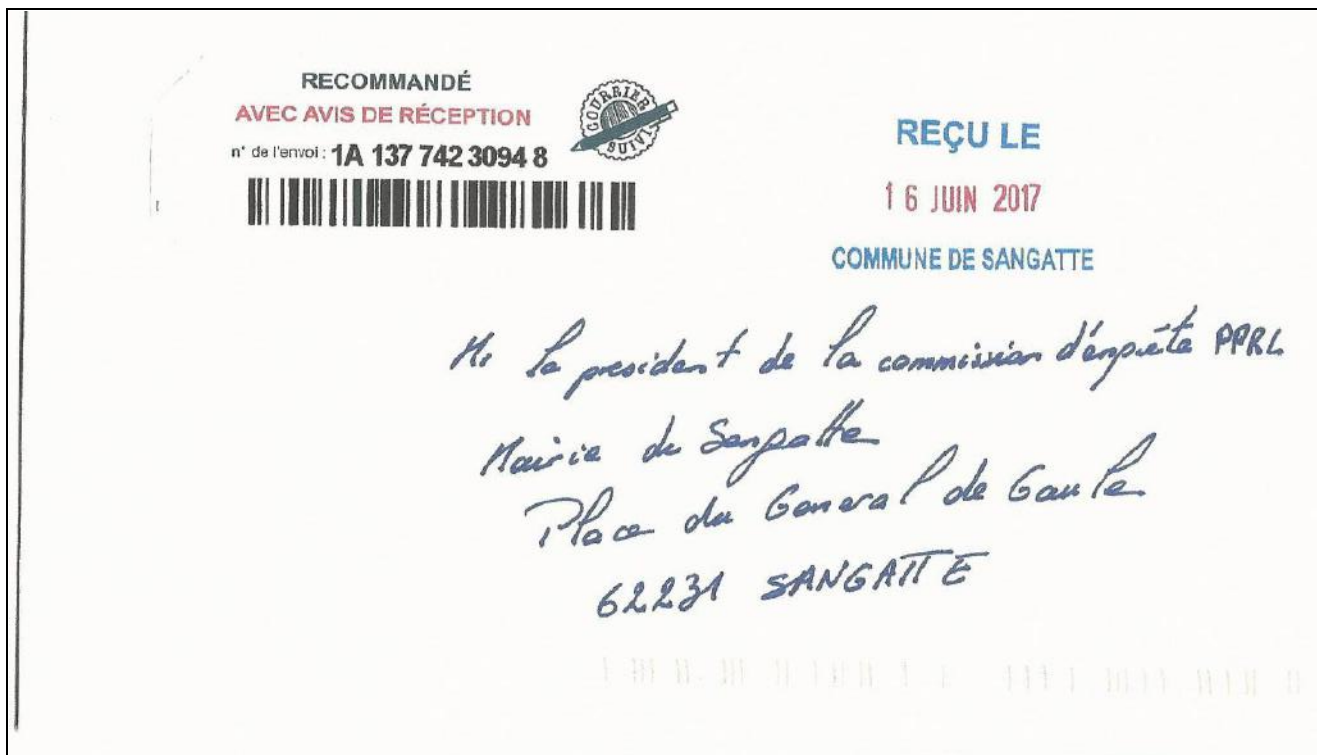 RECOMMANDÉ
AVEC AVIS DE RÉCEPTION
n° de l'envoi : 1A 137 742 3094 8
COURRIER
SUIVI
REÇU LE
16 JUIN 2017
COMMUNE DE SANGATTE
Mr le president de la commission d'enquête PPRL
Mairie de Sangatte
Place du General de Gaule
62231 SANGATTE